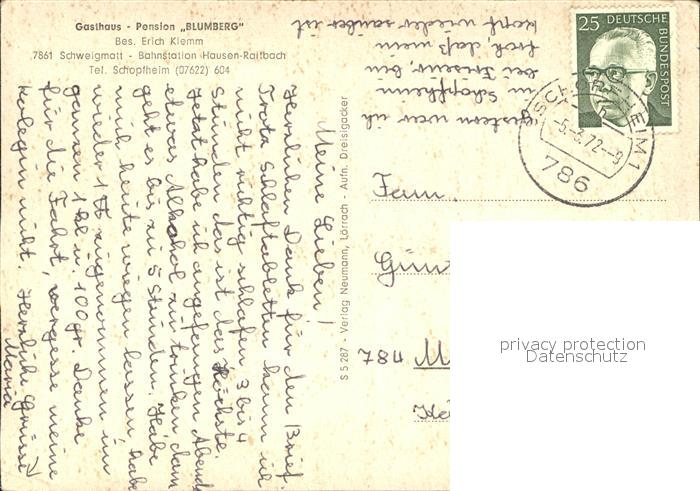 Gasthaus - Pension „BLUMBERG"
Bes. Erich Klemm
7861 Schweigmatt - Bahnstation Hausen-Raitbach
Tel. Schopfheim (07622) 604
Meine Lieben!
Herzlichen Dank für den Brief.
Trotz Schlaftabletten kann ich
nicht richtig schlafen 3 bis 4
Stunden das ist das Höchste.
Jetzt habe ich angefangen Abends
etwas Alkohol zu trinken dann
geht es bis zu 5 Stunden. Habe
mich heute wiegen lassen habe
wieder 1 ℔ zugenommen im
ganzen 1 kl u. 100gr. Danke
für die Fahrt, vergesse meine
Kolegin nicht. Herzliche Grüsse
Maria
gestern war ich
in Schopfheim
bei Friseur, bin
froh, daß mein
Kopf wieder sauber ist
S 5 287 - Verlag Neumann, Lörrach - Aufn. Dreisigacker
25 DEUTSCHE
BUNDESPOST
SCHOPFHEIM 1
-5.-3.72.-9
786
Fam.
Gün
784 M
privacy protection
Datenschutz